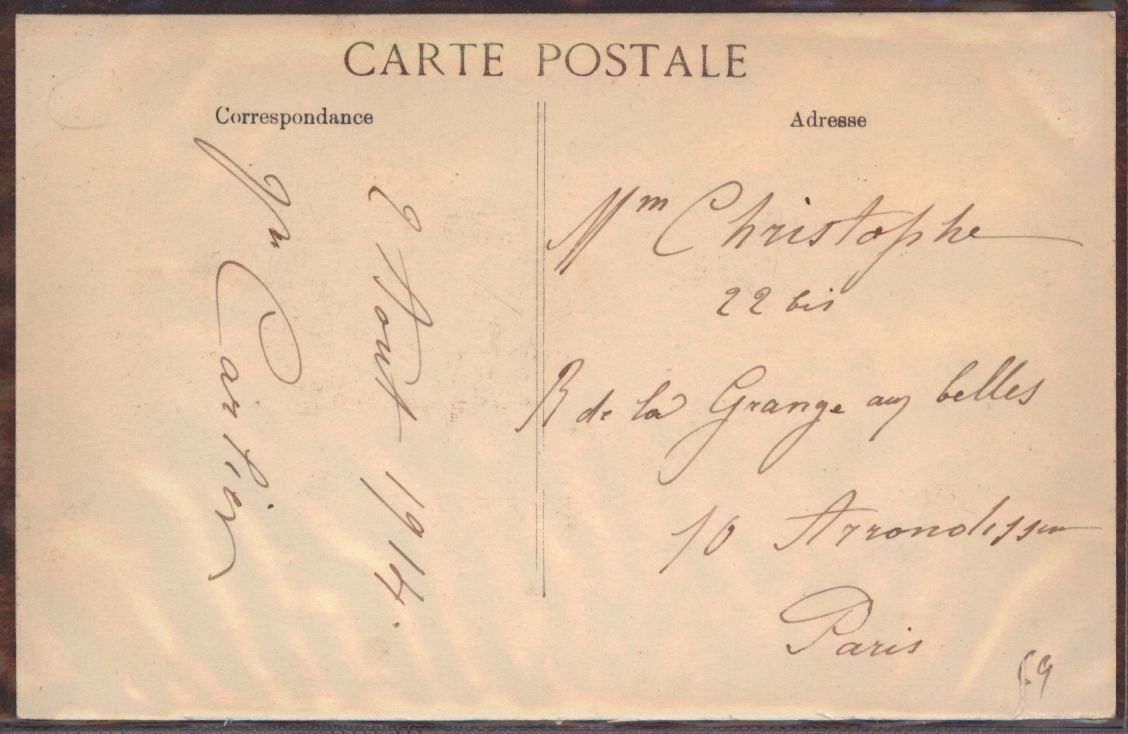 CARTE POSTALE
Correspondance
Adresse
2 Aout 1914.
Cartier
Mm Christophe
22 bis
R de la Grange aux belles
10 Arrondissem
Paris